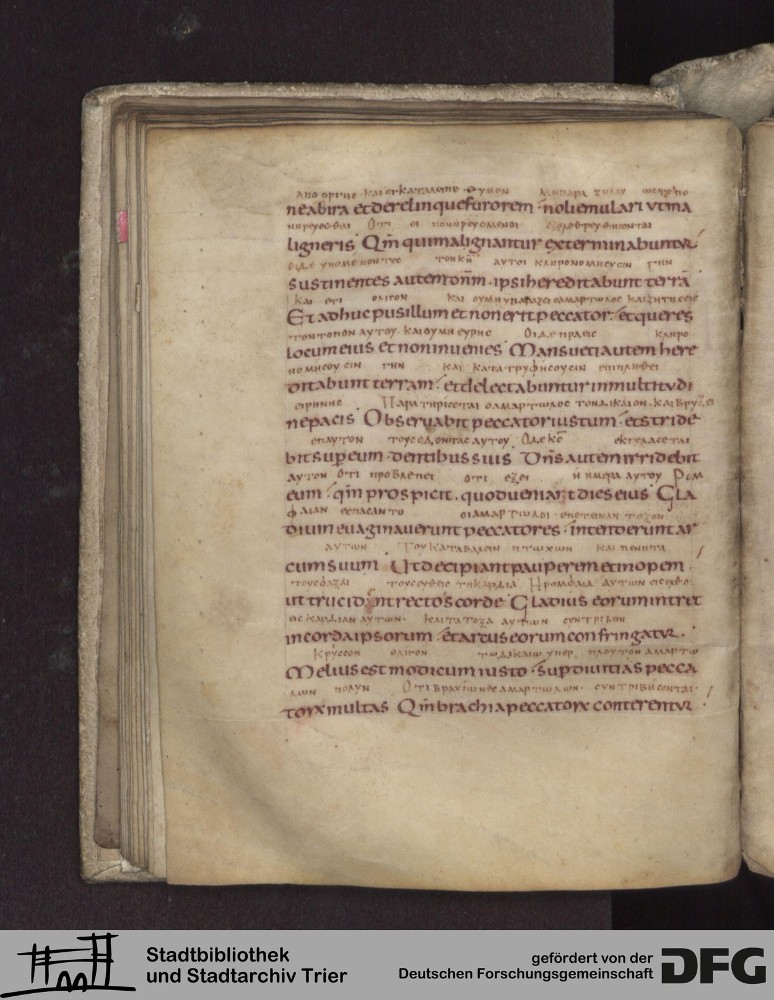 ΑΠΟ ΟΡΓΗС ΚΑΙ ΕΓΚΑΤΑΛΕΙΠΕ ΘΥΜΟΝ ΜΗ ΠΑΡΑ ΖΗΛΟΥ
ne abira et derelinque furorem · noli emulari ut ma
ΟΤΙ ΟΙ ΠΟΝΗΡΕΥΟΜΕΝΟΙ ΕΞΟΛΟΘΡΕΥΘΗСΟΝΤΑΙ
ligneris Qm̄ qui malignantur exterminabuntur
ΟΙ ΔΕ ΥΠΟΜΕΝΟΝΤΕС ΤΟΝ ΚΝ̄ ΑΥΤΟΙ ΚΛΗΡΟΝΟΜΗСΟΥСΙΝ ΓΗΝ
sustinentes autem dnm̄ · ipsi hereditabunt terrā
ΚΑΙ ΕΤΙ ΟΛΙΓΟΝ ΚΑΙ ΟΥ ΜΗ ΥΠΑΡΞΕΙ ΑΜΑΡΤΩΛΟС ΚΑΙ ΖΗΤΗСΕΙС
Et adhuc pusillum et non erit peccator · et queres
ΤΟΝ ΤΟΠΟΝ ΑΥΤΟΥ · ΚΑΙ ΟΥ ΜΗ ΕΥΡΗС ΟΙ ΔΕ ΠΡΑΕΙС ΚΛΗΡΟ
locum eius et non invenies Mansueti autem here
ΝΟΜΗСΟΥСΙΝ ΓΗΝ ΚΑΙ ΚΑΤΑΤΡΥΦΗСΟΥСΙΝ ΕΠΙ ΠΛΗΘΕΙ
ditabunt terram · et delectabuntur in multitudi
ΕΙΡΗΝΗС ΠΑΡΑΤΗΡΗСΕΤΑΙ Ο ΑΜΑΡΤΩΛΟС ΤΟΝ ΔΙΚΑΙΟΝ · ΚΑΙ ΒΡΥΞΕΙ
ne pacis Observabit peccator iustum · et stride
ΕΠ ΑΥΤΟΝ ΤΟΥС ΟΔΟΝΤΑС ΑΥΤΟΥ Ο ΔΕ ΚС̄ ΕΚΓΕΛΑСΕΤΑΙ
bit super eum · dentibus suis Dn̄s autem irridebit
ΑΥΤΟΝ ΟΤΙ ΠΡΟΒΛΕΠΕΙ ΟΤΙ ΗΞΕΙ Η ΗΜΕΡΑ ΑΥΤΟΥ ΡΟΜ
eum · qm̄ prospicit · quod veniat dies eius Gla
ΦΑΙΑΝ ΕСΠΑСΑΝΤΟ ΟΙ ΑΜΑΡΤΩΛΟΙ ΕΝΕΤΕΙΝΑΝ ΤΟΞΟΝ
dium evaginaverunt peccatores · intenderunt ar
ΑΥΤΩΝ ΤΟΥ ΚΑΤΑΒΑΛΕΙΝ ΠΤΩΧΟΝ ΚΑΙ ΠΕΝΗΤΑ
cum suum Ut decipiant pauperem et inopem
ΤΟΥ СΦΑΞΑΙ ΤΟΥС ΕΥΘΕΙС ΤΗ ΚΑΡΔΙΑ Η ΡΟΜΦΑΙΑ ΑΥΤΩΝ
ut trucident rectos corde Gladius eorum intret
ΕΙС ΚΑΡΔΙΑΝ ΑΥΤΩΝ · ΚΑΙ ΤΑ ΤΟΞΑ ΑΥΤΩΝ
in corda ipsorum · et arcus eorum confringatur
ΚΡΥССΟΝ ΟΛΙΓΟΝ ΤΩ ΔΙΚΑΙΩ ΥΠΕΡ ΠΛΟΥΤΟΝ ΑΜΑΡΤΩ
Melius est modicum iusto · sup divitias pecca
ΛΩΝ ΠΟΛΥΝ ΟΤΙ ΒΡΑΧΙΟΝΕС ΑΜΑΡΤΩΛΩΝ · СΥΝΤΡΙΒΗСΟΝΤΑΙ
torx multas Qm̄ brachia peccatorx conterentur
Stadtbibliothek
und Stadtarchiv Trier
gefördert von der
Deutschen Forschungsgemeinschaft
DFG